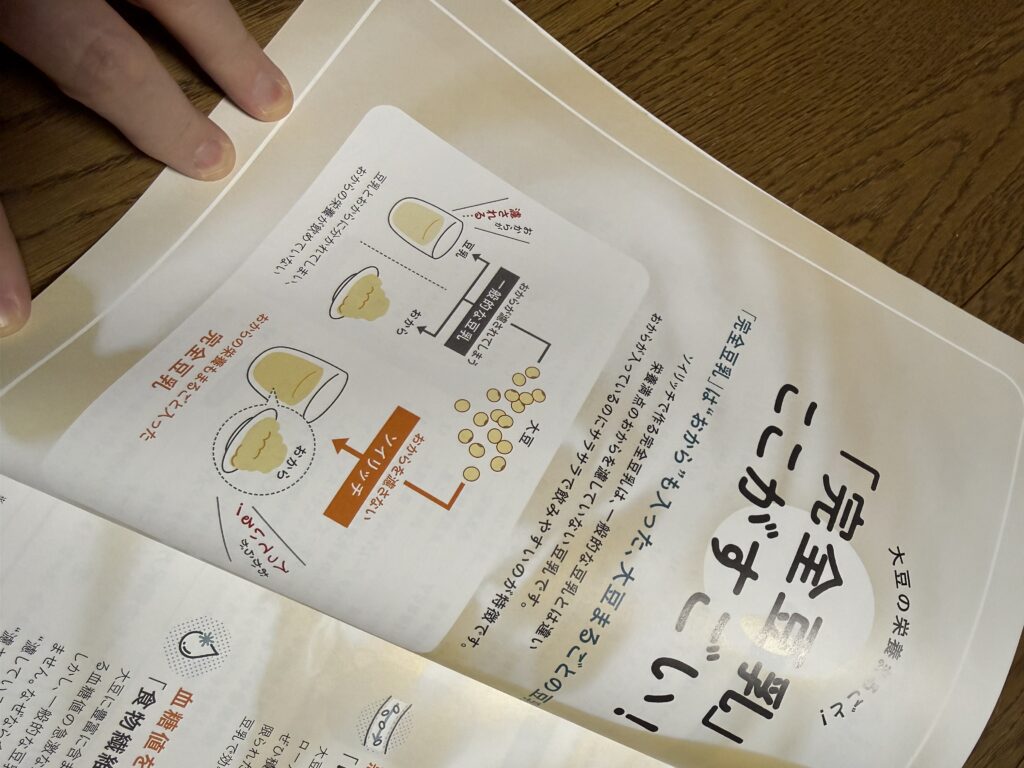 大豆の栄養まるごと！
「完全豆乳」
ここがすごい！
「完全豆乳」は“おから”も入った、大豆まるごとの豆
ソイリッチで作る完全豆乳は、一般的な豆乳とは違い
栄養満点のおからを濾していない豆乳です。
おからが入っているのにサラサラで飲みやすいのが特徴です。
大豆
おからが濾されてしまう
一般的な豆乳
豆乳
おから
おからが
濾される…
豆乳とおからに分かれてしまい、
おからの栄養が飲めていない
おからを濾さない
ソイリッチ
おから
おからが
入ってるよ！
おからの栄養もまるごと入った
完全豆乳
血糖値を
「食物繊維
大豆に豊富に含ま
る血糖値の急激な
しかし、一般的な豆
ません。なぜなら
“濾してい
大豆
ロー
ぜひ積
限られた
豆乳で効